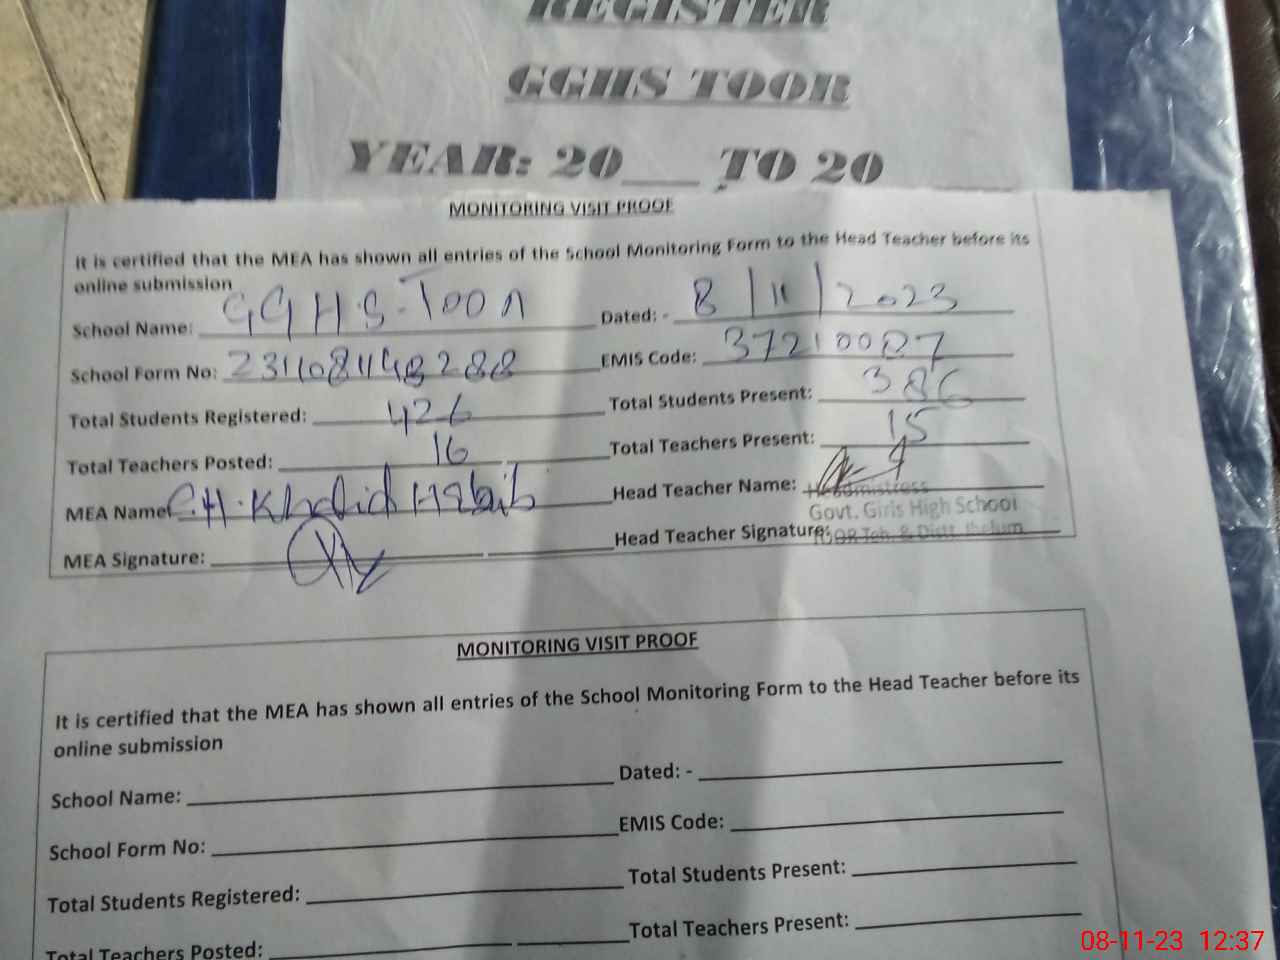 REGISTER
GGHS TOOR
YEAR: 20___ TO 20
MONITORING VISIT PROOF
It is certified that the MEA has shown all entries of the School Monitoring Form to the Head Teacher before its
online submission
School Name: GGHS-Toor Dated: - 8/11/2023
School Form No: EMIS Code: 37210087
Total Students Registered: 426 Total Students Present: 386
Total Teachers Posted: 16 Total Teachers Present: 15
MEA Name: CH. Khalid Habib Head Teacher Name:
Headmistress
Govt. Girls High School
MEA Signature: Head Teacher Signature:
TOOR Teh. & Distt. Jhelum
MONITORING VISIT PROOF
It is certified that the MEA has shown all entries of the School Monitoring Form to the Head Teacher before its
online submission
School Name: Dated: -
School Form No: EMIS Code:
Total Students Registered: Total Students Present:
Total Teachers Posted: Total Teachers Present:
08-11-23 12:37